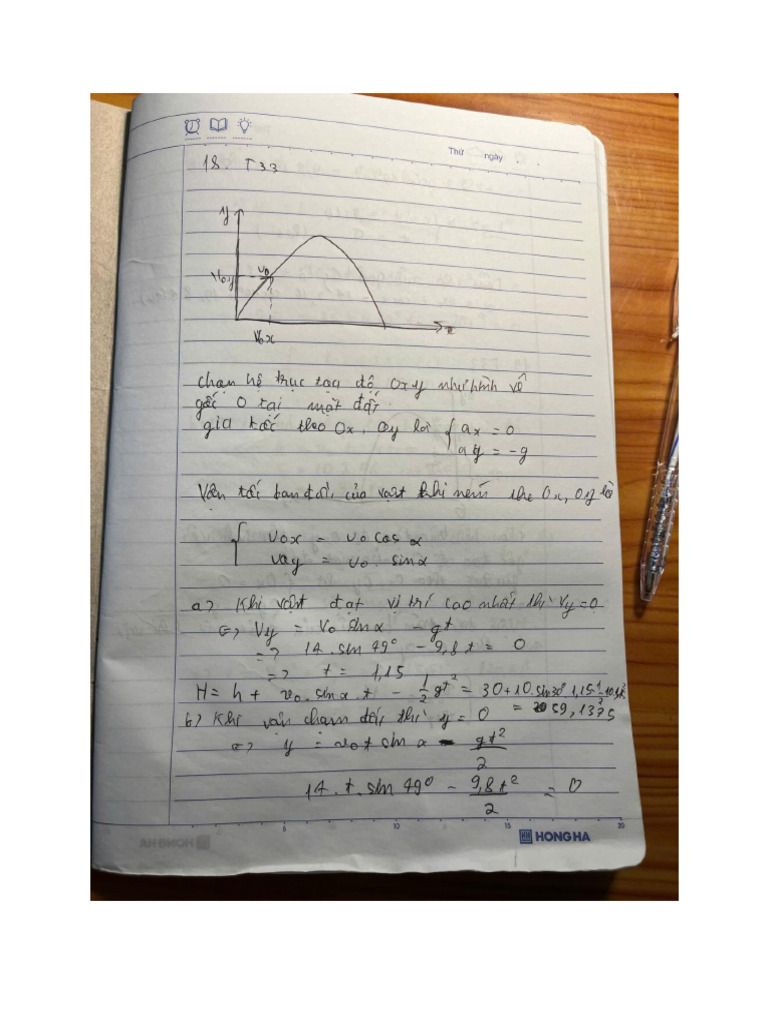 Thứ ngày
18. T33
y
v0y
v0
x
v0x
chọn hệ trục tọa độ Oxy như hình vẽ
gốc O tại mặt đất
gia tốc theo Ox, Oy là { ax = 0
ay = -g
Vận tốc ban đầu của vật khi ném the Ox, Oy là
{ v0x = v0 cos α
v0y = v0 sin α
a) Khi vật đạt vị trí cao nhất thì vy = 0
<=> Vy = v0 sin α - gt
=> 14. sin 49° - 9,8 t = 0
=> t = 1,15
H = h + v0. sin α. t - 1/2 gt² = 30+10 sin 30°. 1,15
= 59,1375
b) Khi vận chạm đất thì y = 0
<=> y = v0 t sin α - gt²/2
14. t. sin 49° - 9,8t²/2 = 0
5 10 15 20
HONG HA